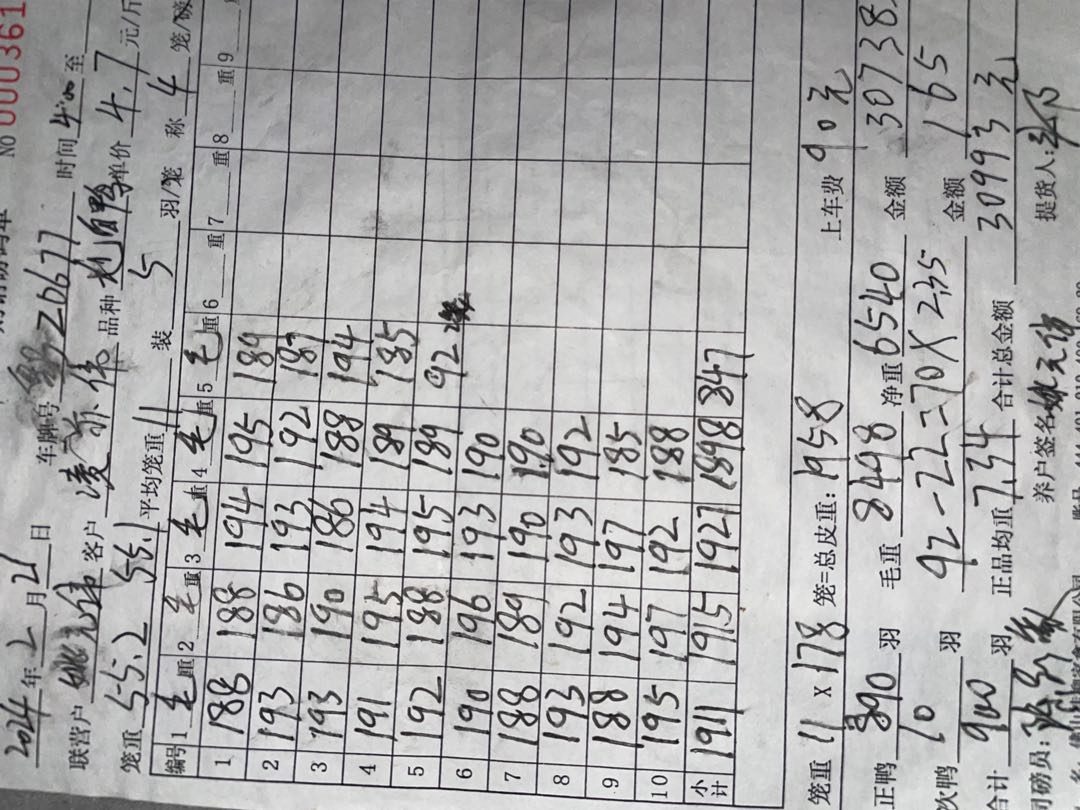 № 000361
2024年2月21日 车牌号 ZD677 时间4:00至
联营户 姚元伟 客户 凌 伟 品种 单价 4.7 元/斤
笼重 55.2 55.1 平均笼重 11 装 5 羽/笼 称 4 笼/磅
编号 1 毛重 2 毛重 3 毛重 4 毛重 5 毛重 6 重 7 重 8 重 9
1 188 188 194 195 189
2 193 186 193 192 187
3 193 190 180 188 194
4 191 195 194 189 185
5 192 188 195 189 92
6 190 196 193 190
7 188 189 190 190
8 193 192 193 192
9 188 194 197 185
10 195 197 192 188
小计 1911 1915 1927 1898 847
笼重 11 x 178 笼=总皮重: 1958 上车费 90元
正鸭 890 羽 毛重 8498 净重 6540 金额 30738
次鸭 10 羽 92-22=70X2.35 金额 165
合计 900 羽 正品均重 7.34 合计总金额 30993 元
司磅员: 养户签名 提货人: